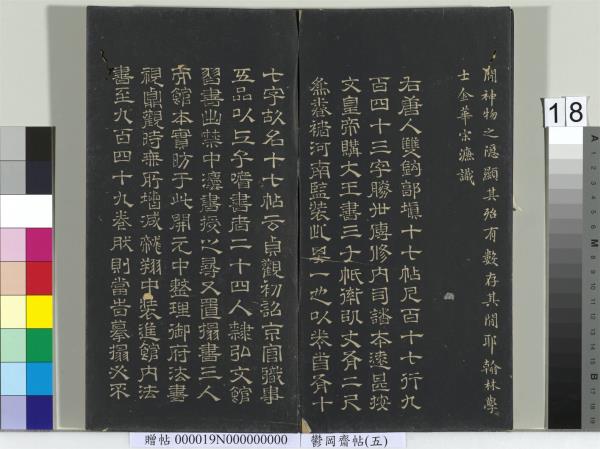 開神物之隱顯其殆有數存其間耶翰林學
士金華宋濂識
右唐人雙鉤郭填十七帖凡百十七行九
百四十三字勝世傳修內司諸本遠甚按
文皇帝購大王書三千紙率以丈有二尺
為卷褚河南監裝此是一也以卷首有十
七字故名十七帖云貞觀初詔京官職事
五品以上子嗜書者二十四人隸弘文館
習書出禁中灋書授之尋又置搨書三人
帝館本實昉于此開元中整理御府法書
視貞觀時無所增減龍朔中裝進館內法
書至九百四十九卷然則當時摹搨必不
18
贈帖 000019N000000000
鬱岡齋帖(五)